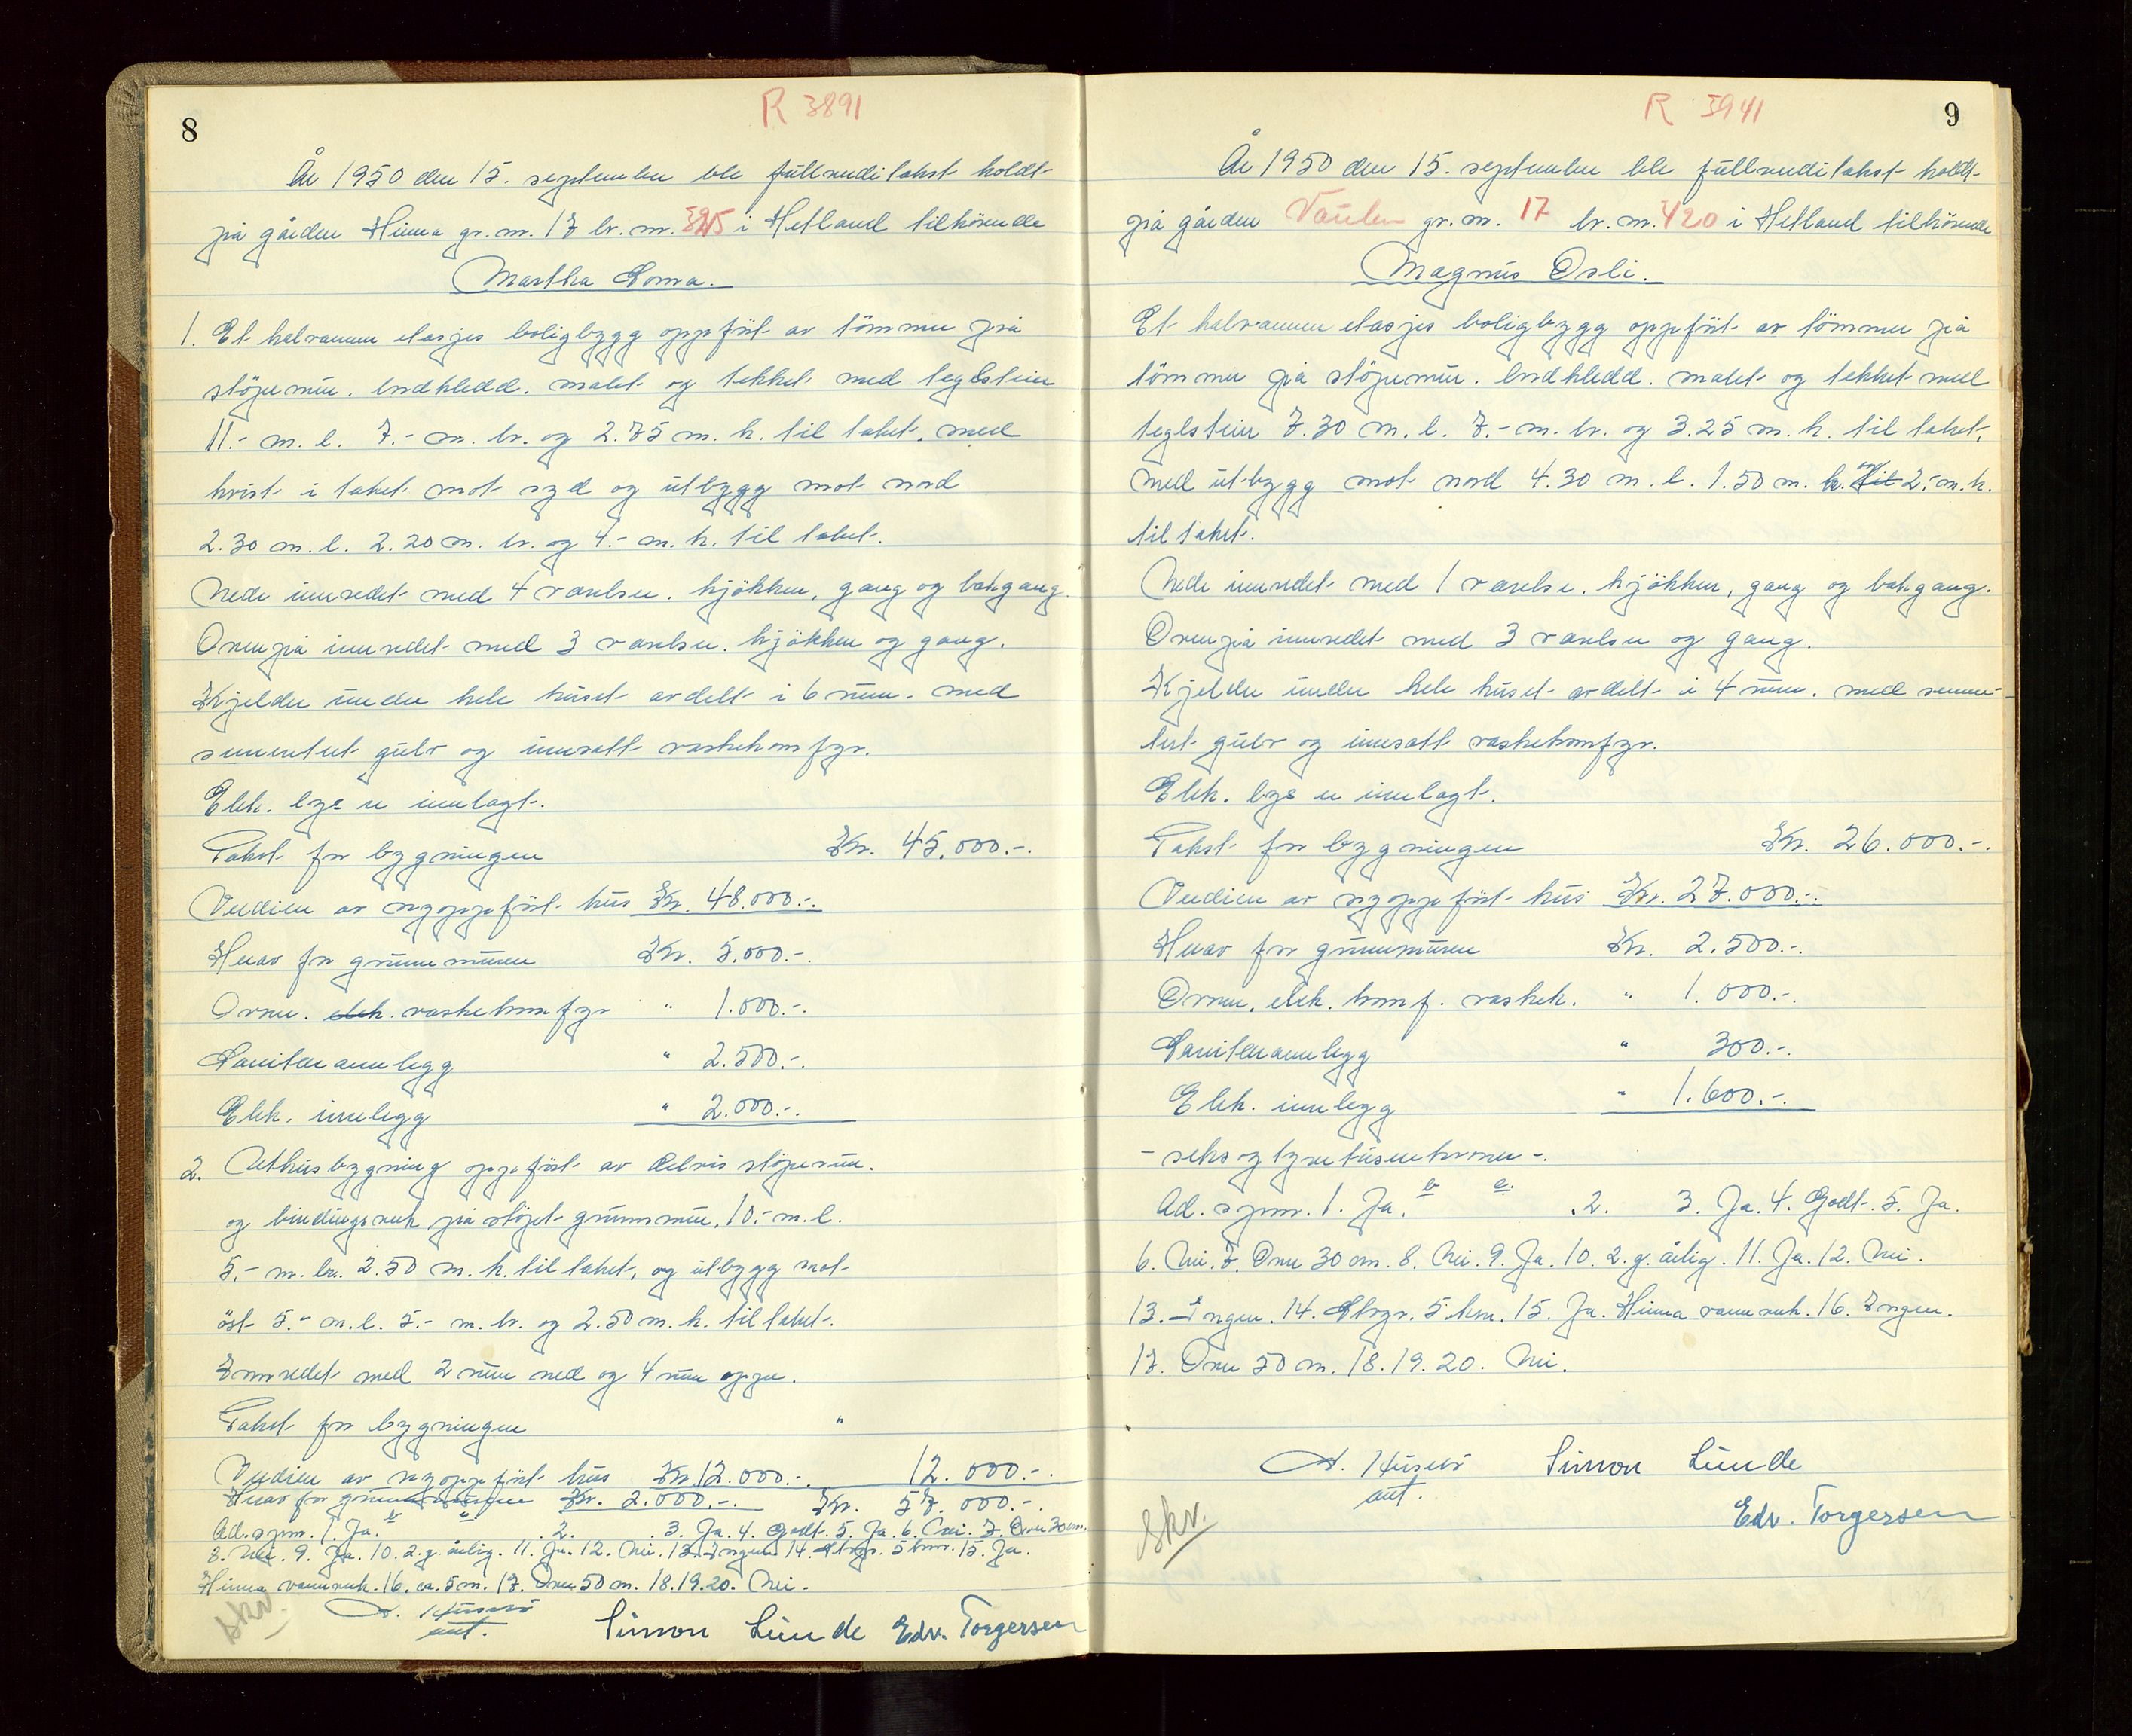 8
R 3891
År 1950 den 15. september ble fullverditakst holdt
på gården Hinna gr. nr. 17 br. nr. 395 i Hetland tilhörende
Martha Soma.
1. Et halvannen etasjes boligbygg oppfört av tömmer på
stöpemur. bordkledd. malt og tekket med teglstein
11.- m. l. 7.- m. br. og 2.75 m. h. til taket, med
kvist i taket mot syd og utbygg mot nord
2.30 m. l. 2.20 m. br. og 4.- m. h. til taket.
Nede innredet med 4 værelser. kjökken, gang og bakgang.
Ovenpå innredet med 3 værelser. kjökken og gang.
Kjelder under hele huset avdelt i 6 rum. med
sementert gulv og innsatt vaskekomfyr.
Elek. lys er innlagt.
Takst for bygningen Kr. 45.000.-.
Verdien av nyoppfört hus Kr. 48.000.-.
Herav for grunnmuren Kr. 5.000.-.
Ovner. elek. vaskekomfyr " 1.000.-.
Sanitæranlegg " 2.500.-.
Elek. innlegg " 2.000.-.
2. Uthusbygning oppfört av delvis stöpemur.
og bindingsverk på stöpt grunnmur. 10.- m. l.
5.- m. br. 2.50 m. h. til taket, og utbygg mot
öst 5.- m. l. 5.- m. br. og 2.50 m. h. til taket.
Innredet med 2 rum ned og 4 rum oppe.
Takst for bygningen "
Verdien av nyoppfört hus Kr. 12.000.-. 12.000.-.
Herav for grunnmuren Kr. 2.000.-. Kr. 57.000.-.
Ad. spm. 1. Ja. b c. .2. .3. Ja. 4. Godt. 5. Ja. 6. Nei. 7. Over 30 cm.
8. Nei. 9. Ja. 10. 2. g. årlig. 11. Ja. 12. Nei. 13. Ingen. 14. Stvgr. 5 km. 15. Ja.
Hinna vannverk. 16. ca. 5 m. 17. Over 50 m. 18. 19. 20. Nei.
Skv.
Simon Lunde Edv. Torgersen
9
R 3941
År 1950 den 15. september ble fullverditakst holdt
på gården Vaulen gr. nr. 17 br. nr. 420 i Hetland tilhörende
Magnus Osli.
Et halvannen etasjes boligbygg oppfört av tömmer på
tömmer på stöpemur. bordkledd. malt og tekket med
teglstein 7.30 m. l. 7.- m. br. og 3.25 m. h. til taket,
med utbygg mot nord 4.30 m. l. 1.50 m. br. og til 2.- m. h.
til taket.
Nede innredet med 1 værelse. kjökken, gang og bakgang.
Ovenpå innredet med 3 værelser og gang.
Kjelder under hele huset avdelt i 4 rum. med semen-
tert gulv og innsatt vaskekomfyr.
Elek. lys er innlagt.
Takst for bygningen Kr. 26.000.-.
Verdien av nyoppfört hus Kr. 27.000.-.
Herav for grunnmuren Kr. 2.500.-.
Ovner. elek. komf. vaskek. " 1.000.-.
Sanitæranlegg " 300.-.
Elek. innlegg " 1.600.-.
- seks og tyve tusen kroner -.
Ad. spm. 1. Ja. b c. .2. 3. Ja. 4. Godt. 5. Ja.
6. Nei. 7. Over 30 cm. 8. Nei. 9. Ja. 10. 2. g. årlig. 11. Ja. 12. Nei.
13. Ingen. 14. Stvgr. 5 km. 15. Ja. Hinna vannverk. 16. Ingen.
17. Over 50 m. 18. 19. 20. Nei.
Simon Lunde
Edv. Torgersen
Skv.